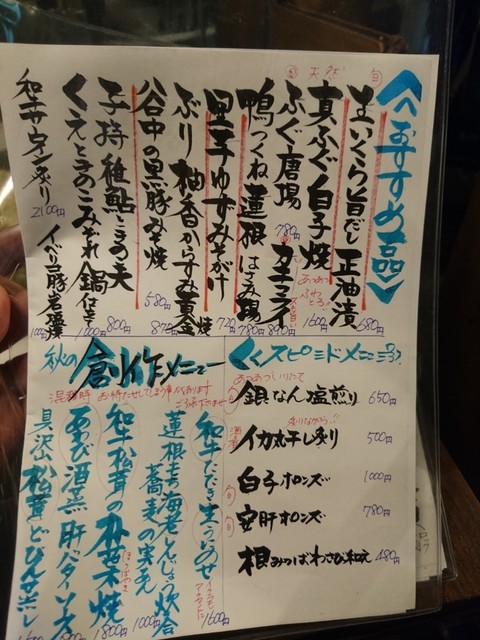 《おすすめ品》
旬
生いくら旨だし正油漬
680円
天然
真ふぐ白子焼
あつあつ
1600円
ふぐ唐揚
780円
カキフライ
890円
鴨つくね蓮根はさみ揚
780円
里芋ゆずみそがけ
720円
ぶり柚香からすみ黄金焼
870円
谷中の黒豚みそ焼
580円
子持稚鮎ときの天
800円
くえときのこみぞれ鍋仕立
1000円
和牛サーロイン炙り
2100円
イベリコ豚岩塩焼
1000円
秋の創作メニュー
混雑時お待たせしてしまう事があります
ご了承下さいませ
和牛たたき生うにのせ
1600円
蓮根もち海老しんじょう炊合
蕎麦の実あん
1000円
和牛松茸の朴葉焼
ほうばやき
1800円
あわび酒蒸 肝バターソース
具沢山松茸どびんむし
《スピードメニュー》
あつあついりたて
銀なん塩煎り 650円
イカ丸干し炙り 500円
白子ポンズ 1000円
安肝ポンズ 780円
根みつばわさび和え 480円